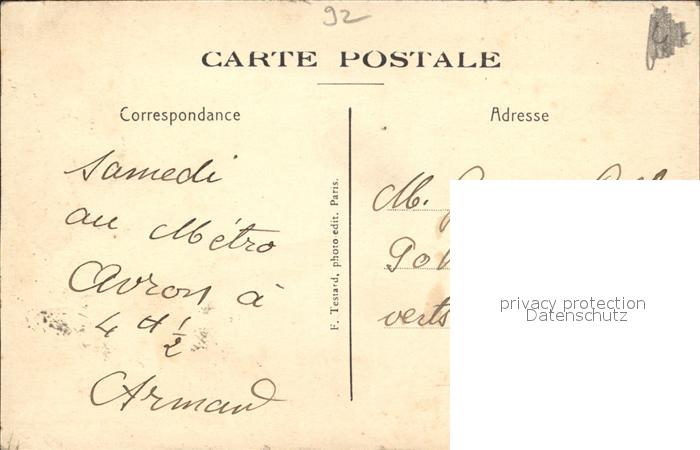 92
CARTE POSTALE
Correspondance
Adresse
Samedi
au Métro
Avron à
4 h 1/2
Armand
F. Testard, photo edit. Paris.
M.
verts
privacy protection
Datenschutz